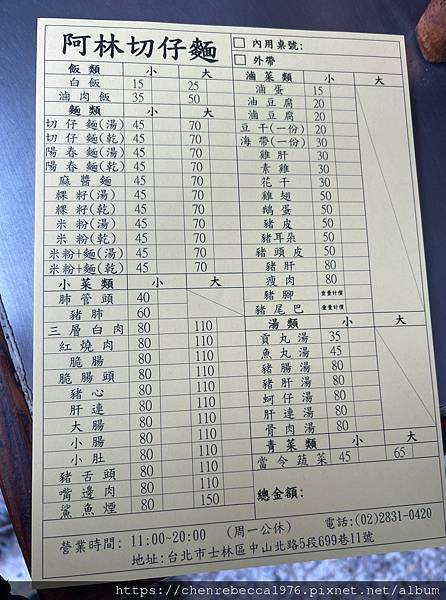 阿林切仔麵
內用桌號:
外帶
飯類 小 大
白飯 15 25
滷肉飯 35 50
麵類 小 大
切仔麵(湯) 45 70
切仔麵(乾) 45 70
陽春麵(湯) 45 70
陽春麵(乾) 45 70
麻醬麵 45 70
粿籽(湯) 45 70
粿籽(乾) 45 70
米粉(湯) 45 70
米粉(乾) 45 70
米粉+麵(湯) 45 70
米粉+麵(乾) 45 70
小菜類 小 大
肺管頭 40
豬肺 60
三層白肉 80 110
紅燒肉 80 110
脆腸 80 110
脆腸頭 80 110
豬心 80 110
肝連 80 110
大腸 80 110
小腸 80 110
小肚 80 110
豬舌頭 80 110
嘴邊肉 80 110
鯊魚煙 80 150
滷菜類 小 大
滷蛋 15
油豆腐 20
滷豆腐 20
豆干(一份) 20
海帶(一份) 30
雞肝 30
素雞 30
花干 30
雞翅 50
鵝蛋 50
豬皮 50
豬耳朵 50
豬頭皮 50
豬肝 80
瘦肉 80
豬腳
豬尾巴
湯類 小 大
貢丸湯 35
魚丸湯 45
豬腸湯 80
豬肝湯 80
蚵仔湯 80
肝連湯 80
骨肉湯 80
青菜類 小 大
當令蔬菜 45 65
總金額:
營業時間: 11:00~20:00 (周一公休) 電話:(02)2831-0420
地址:台北市士林區中山北路5段699巷11號
https://chenrebecca1976.pixnet.net/album